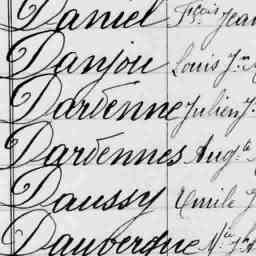 Daniel Fçois Jean
Danjou Louis Jn
Dardenne Julien J.
Dardennes Augte
Daussy Emile
Dauvergne Nas Jn